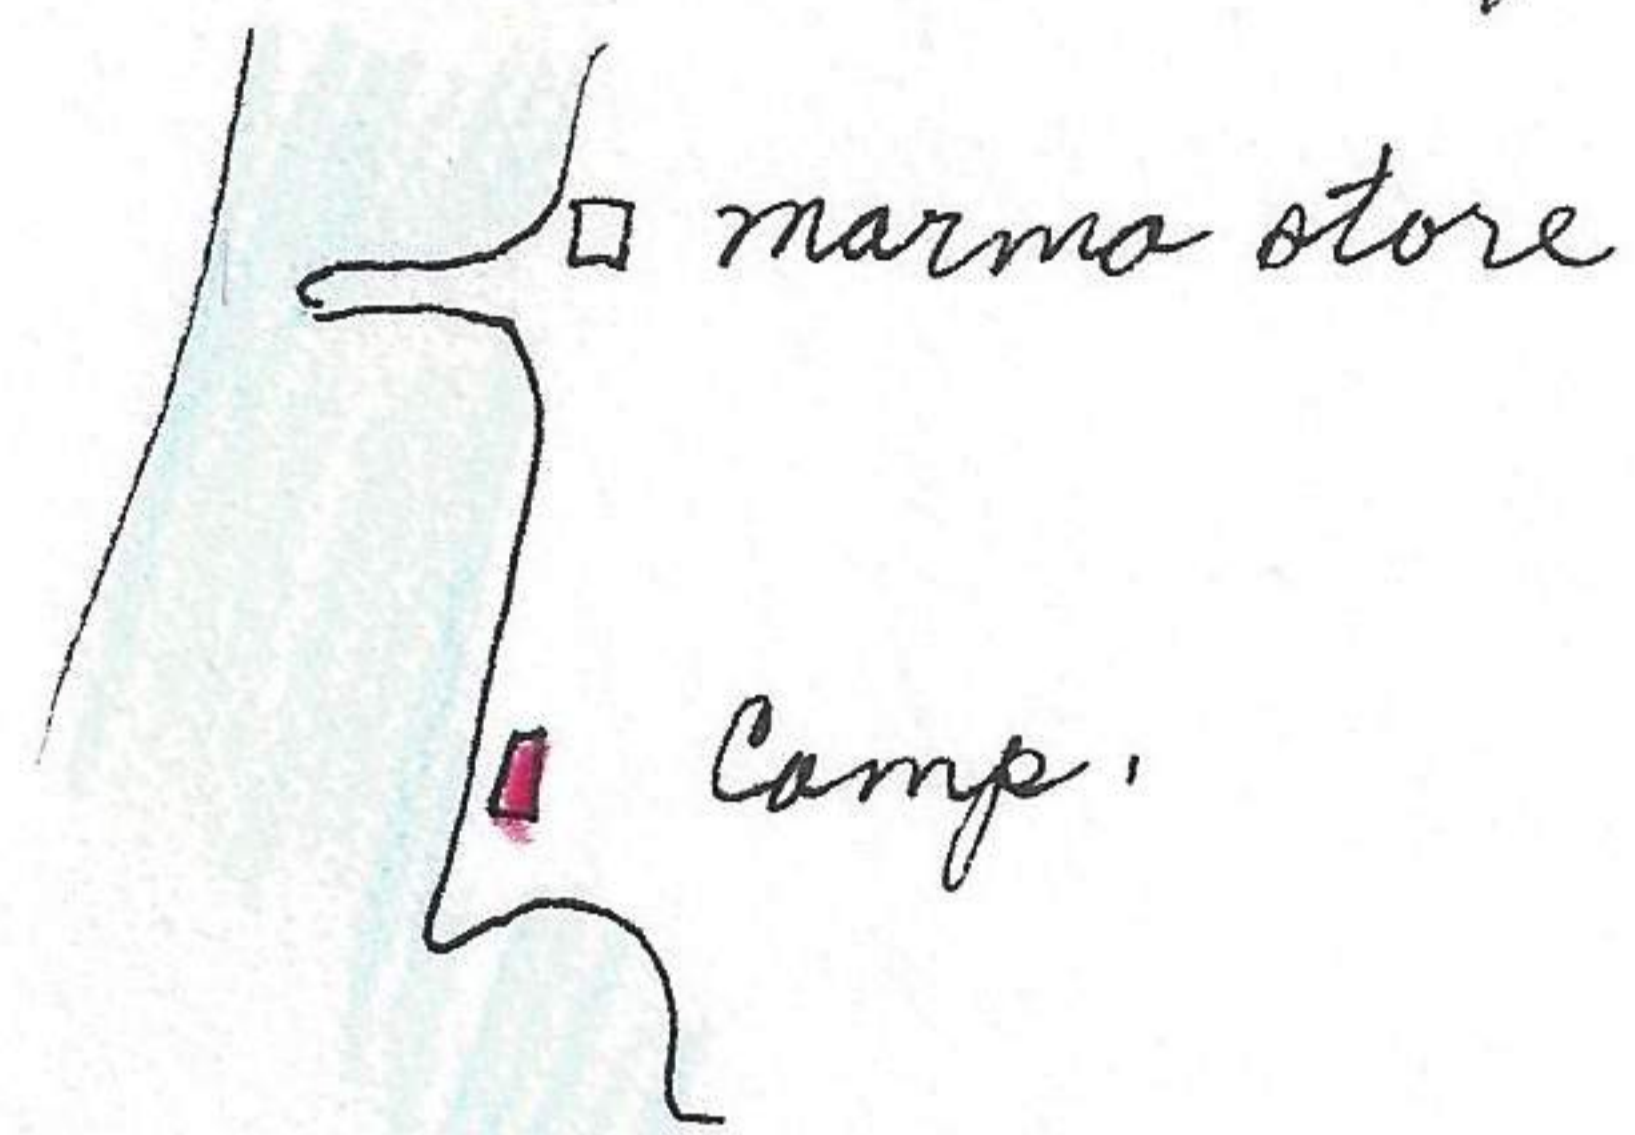 marmo store
Camp.